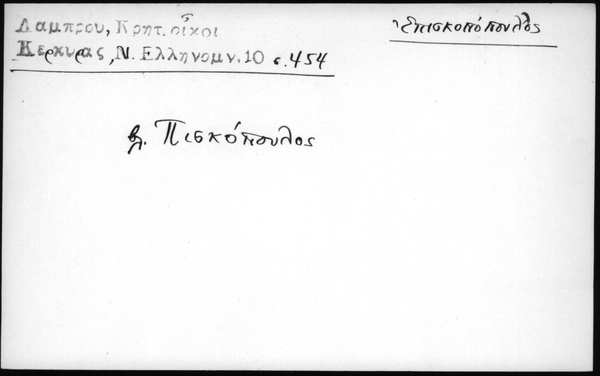 Λαμπρου, Κρητ. οἶκοι
Κερκυρας, Ν. Ελληνομν. 10 σ. 454
Ἐπισκοπόπουλος
βλ. Πισκόπουλος